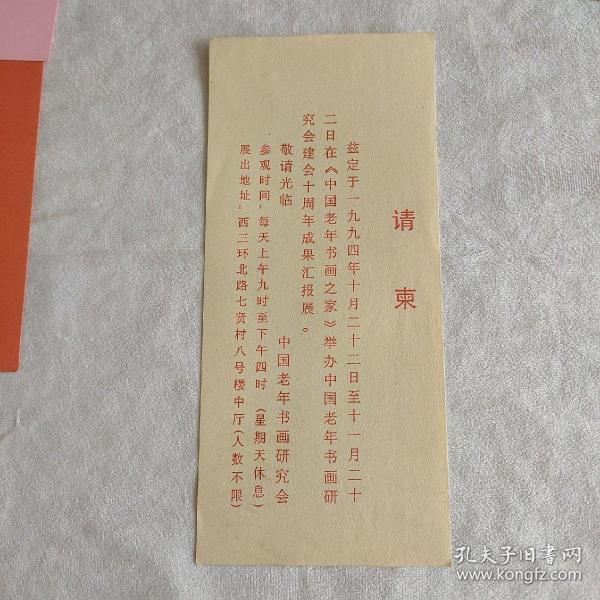 请柬
兹定于一九九四年十月二十二日至十一月二十
二日在《中国老年书画之家》举办中国老年书画研
究会建会十周年成果汇报展。
敬请光临
中国老年书画研究会
参观时间：每天上午九时至下午四时（星期天休息）
展出地址：西三环北路七贤村八号楼中厅（人数不限）
孔夫子旧书网
www.kongfz.com